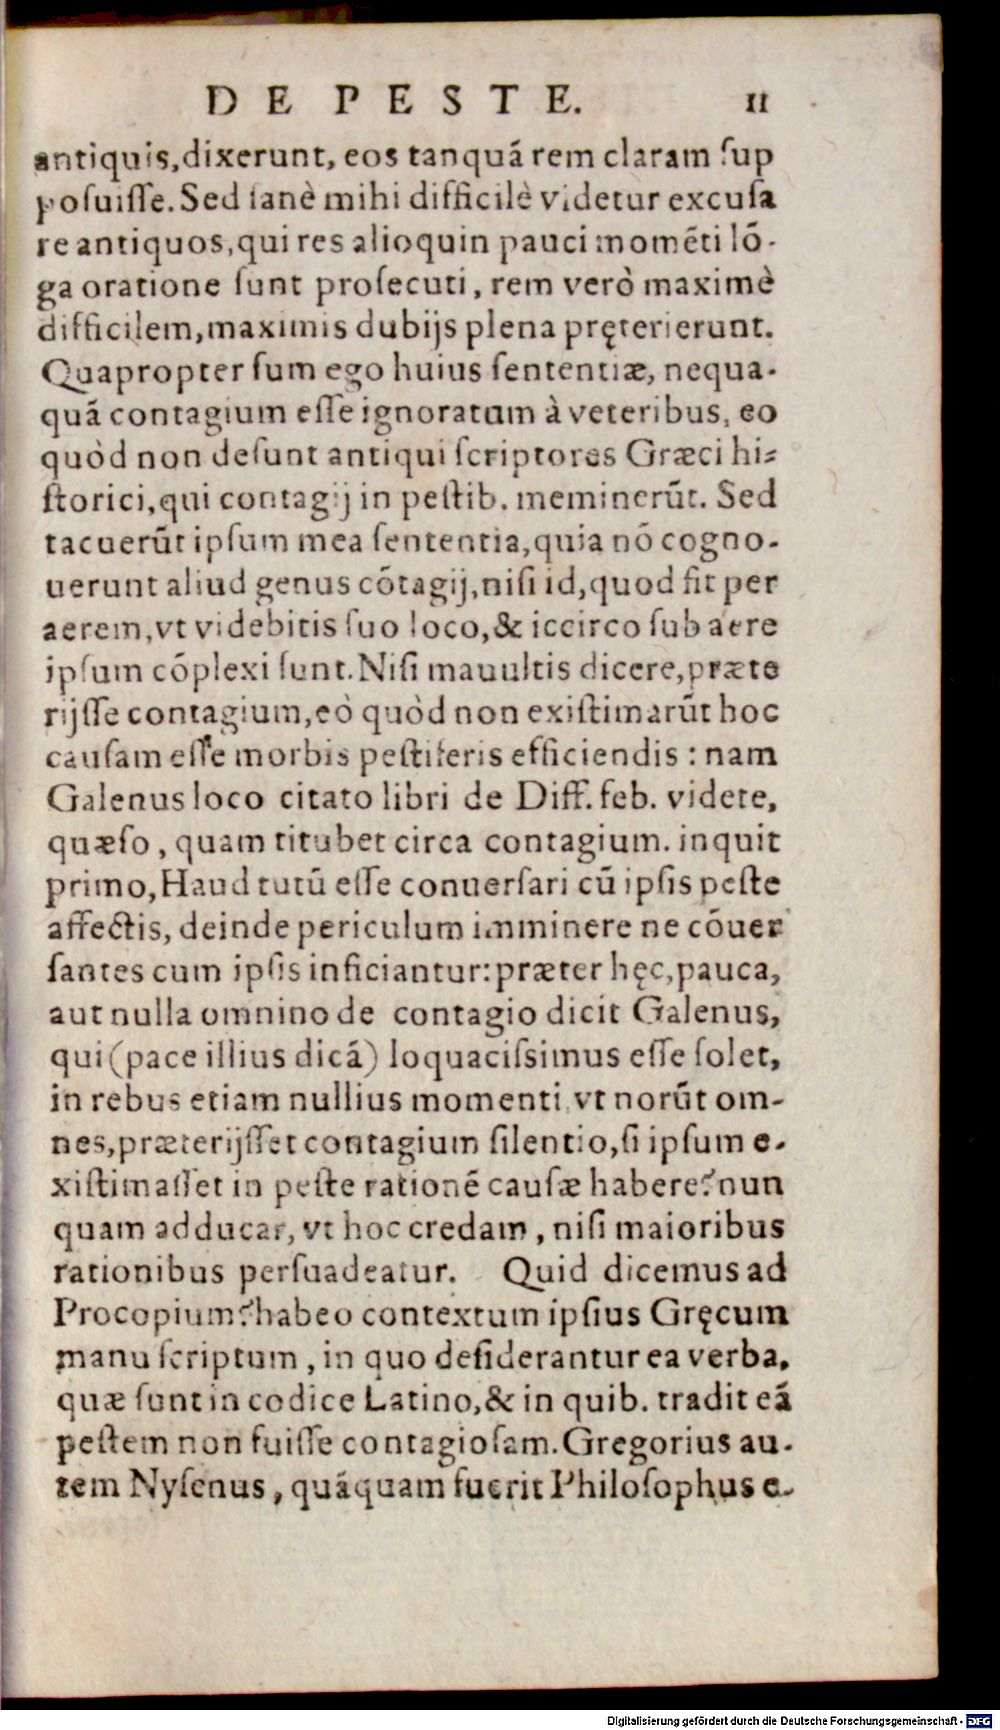 DE PESTE. 11
antiquis,dixerunt, eos tanquã rem claram ſup
poſuiſſe. Sed ſanè mihi difficilè videtur excuſa
re antiquos,qui res alioquin pauci momẽti lõ-
ga oratione ſunt proſecuti, rem verò maximè
difficilem,maximis dubijs plena pręterierunt.
Quapropter ſum ego huius ſententiæ, nequa-
quã contagium eſſe ignoratum à veteribus, eo
quòd non deſunt antiqui ſcriptores Græci hi-
ſtorici,qui contagij in peſtib. meminerũt. Sed
tacuerũt ipſum mea ſententia,quia nõ cogno-
uerunt aliud genus cõtagij,niſi id,quod fit per
aerem,vt videbitis ſuo loco,& iccirco ſub aere
ipſum cõplexi ſunt. Niſi mauultis dicere,præte
rijſſe contagium,eò quòd non exiſtimarũt hoc
cauſam eſſe morbis peſtiferis efficiendis : nam
Galenus loco citato libri de Diff. feb. videte,
quæſo, quam titubet circa contagium. inquit
primo,Haud tutũ eſſe conuerſari cũ ipſis peſte
affectis, deinde periculum imminere ne cõuer
ſantes cum ipſis inficiantur: præter hęc,pauca,
aut nulla omnino de contagio dicit Galenus,
qui (pace illius dicã) loquaciſsimus eſſe ſolet,
in rebus etiam nullius momenti, vt norũt om-
nes,præterijſſet contagium ſilentio,ſi ipſum e-
xiſtimaſſet in peſte rationẽ cauſæ habere? nun
quam adducar, vt hoc credam, niſi maioribus
rationibus perſuadeatur. Quid dicemus ad
Procopium? habeo contextum ipſius Gręcum
manuſcriptum, in quo deſiderantur ea verba,
quæ ſunt in codice Latino,& in quib. tradit eã
peſtem non fuiſſe contagioſam. Gregorius au-
tem Nyſenus, quãquam fuerit Philoſophus e-
Digitalisierung gefördert durch die Deutsche Forschungsgemeinschaft - DFG